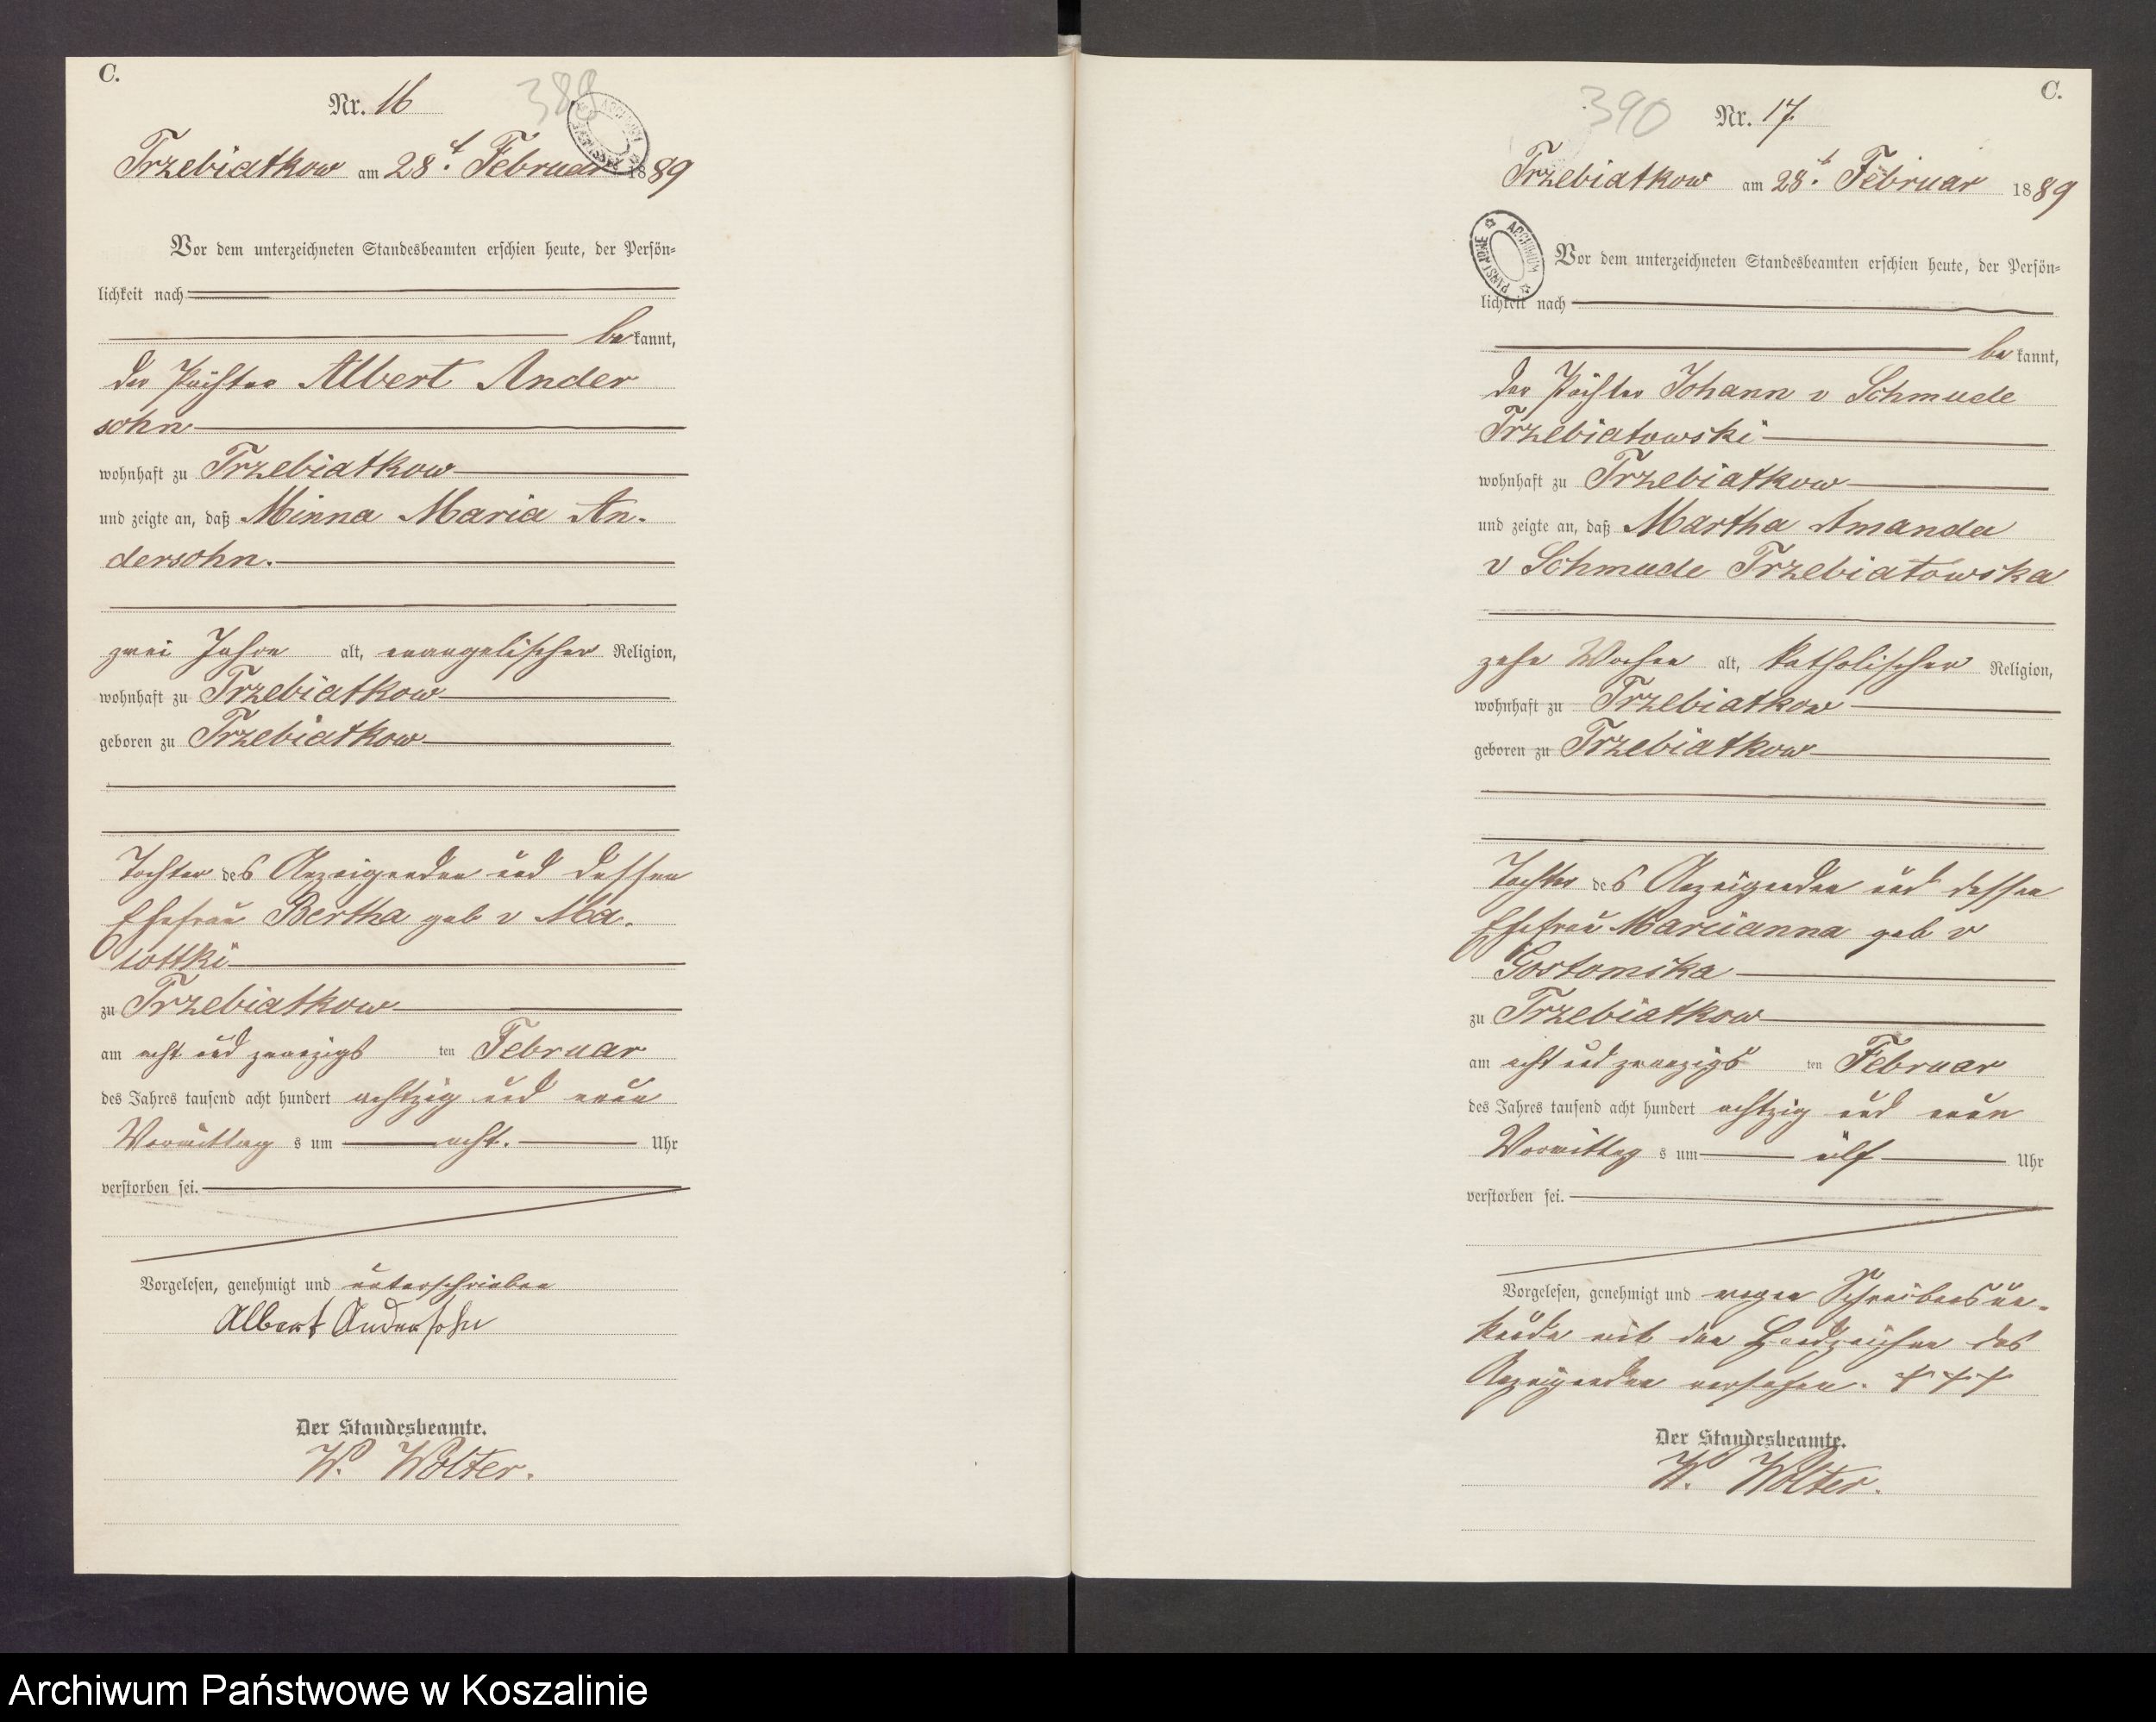 C.
Nr. 16
388
Trzebiatkow am 28t. Februar 1889
Vor dem unterzeichneten Standesbeamten erschien heute, der Persön-
lichkeit nach
be kannt,
der Pächter Albert Ander
sohn
wohnhaft zu Trzebiatkow
und zeigte an, daß Minna Maria An-
dersohn.
zwei Jahre alt, evangelischer Religion,
wohnhaft zu Trzebiatkow
geboren zu Trzebiatkow
Tochter des Anzeigenden und dessen
Ehefrau Bertha geb v Ma-
lottki
zu Trzebiatkow
am acht und zwanzigs ten Februar
des Jahres tausend acht hundert achtzig und neun
Vormittag s um acht. Uhr
verstorben sei.
Vorgelesen, genehmigt und unterschrieben
Albert Andersohn
Der Standesbeamte.
W. Wolter.
C.
390
Nr. 17.
Trzebiatkow am 28t. Februar 1889
ARCHIWUM PAŃSTWOWE
Vor dem unterzeichneten Standesbeamten erschien heute, der Persön-
lichkeit nach
be kannt,
der Pächter Johann v Schmude
Trzebiatowski
wohnhaft zu Trzebiatkow
und zeigte an, daß Martha Amanda
v Schmude Trzebiatowska
zehn Wochen alt, katholischer Religion,
wohnhaft zu Trzebiatkow
geboren zu Trzebiatkow
Tochter des Anzeigenden und dessen
Ehefrau Marianna geb v
Gostomska
zu Trzebiatkow
am acht und zwanzigs ten Februar
des Jahres tausend acht hundert achtzig und neun
Vormittag s um elf Uhr
verstorben sei.
Vorgelesen, genehmigt und wegen Schreibensun-
kunde mit den Handzeichen des
Anzeigenden versehen. +++
Der Standesbeamte.
W. Wolter.
Archiwum Państwowe w Koszalinie